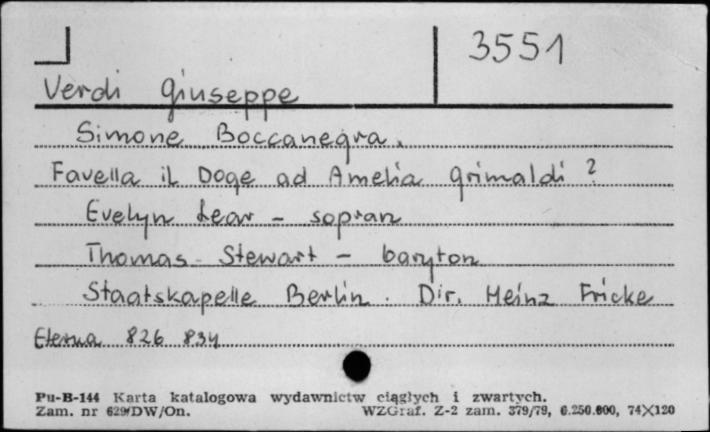 3551
Verdi Giuseppe
Simone Boccanegra.
Favella il Doge ad Amelia Grimaldi?
Evelyn Lear - sopran
Thomas Stewart - baryton
Staatskapelle Berlin. Dir. Heinz Fricke
Eterna 826 834
Pu-B-144 Karta katalogowa wydawnictw ciągłych i zwartych.
Zam. nr 629/DW/On. WZGraf. Z-2 zam. 379/79, 6.250.000, 74X120